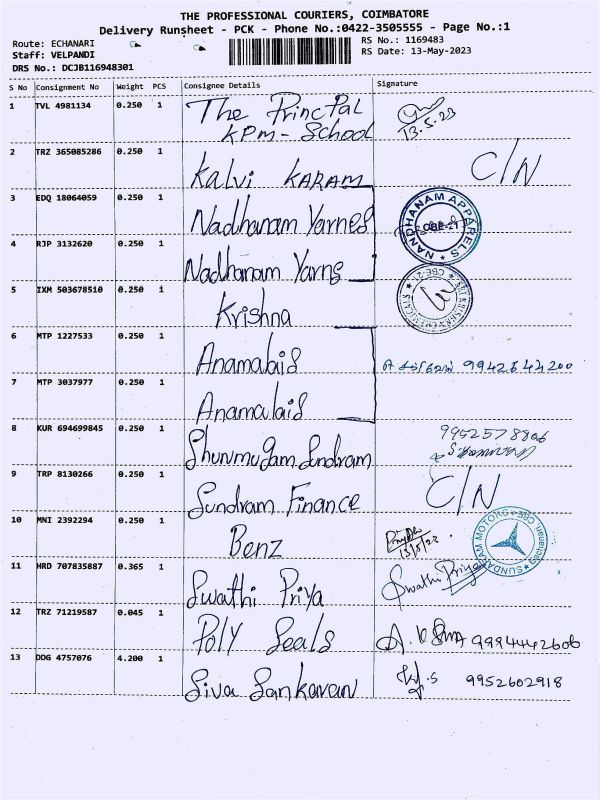 THE PROFESSIONAL COURIERS, COIMBATORE
Delivery Runsheet - PCK - Phone No.:0422-3505555 - Page No.:1
Route: ECHANARI RS No.: 1169483
Staff: VELPANDI RS Date: 13-May-2023
DRS No.: DCJB116948301
S No Consignment No Weight PCS Consignee Details Signature
1 TVL 4981134 0.250 1 The Princpal
KPM- School 13.5.23
2 TRZ 365085286 0.250 1 Kalvi KARAM C/N
3 EDQ 18064059 0.250 1 Nadhanam Yarnes NANDHANAM APPARELS CBE-21
4 RJP 3132620 0.250 1 Nadhanam Yarns
5 IXM 503678510 0.250 1 Krishna CBE-21
6 MTP 1227533 0.250 1 Anamalais
7 MTP 3037977 0.250 1 Anamalais
8 KUR 694699845 0.250 1 Shunmugam Sundram 9952578806
9 TRP 8130266 0.250 1 Sundram Finance C/N
10 MNI 2392294 0.250 1 Benz SUNDARAM MOTORS
11 HRD 707835887 0.365 1 Swathi Priya Swathi Priya
12 TRZ 71219587 0.045 1 Poly Seals 9994442606
13 DDG 4757076 4.200 1 Siva Sankaran 9952602918